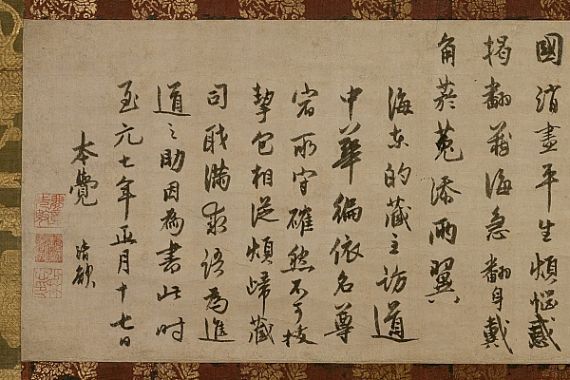 國消盡平生煩惱惑
揭翻蒼海急翻身戴
角菸菟添兩翼
海東的藏主訪道
中華徧依名尊
宿所守確然不可拔
挈包相從煩歸藏
司職滿求語為進
道之助因為書此時
至元七年正月十七日
本覺
清欲